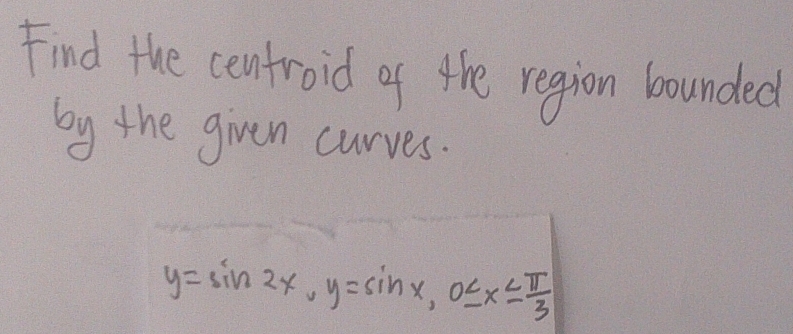 Find the centroid of the region bounded
by the given curves.
y = sin 2x, y = sin x, 0 ≤ x ≤ π/3